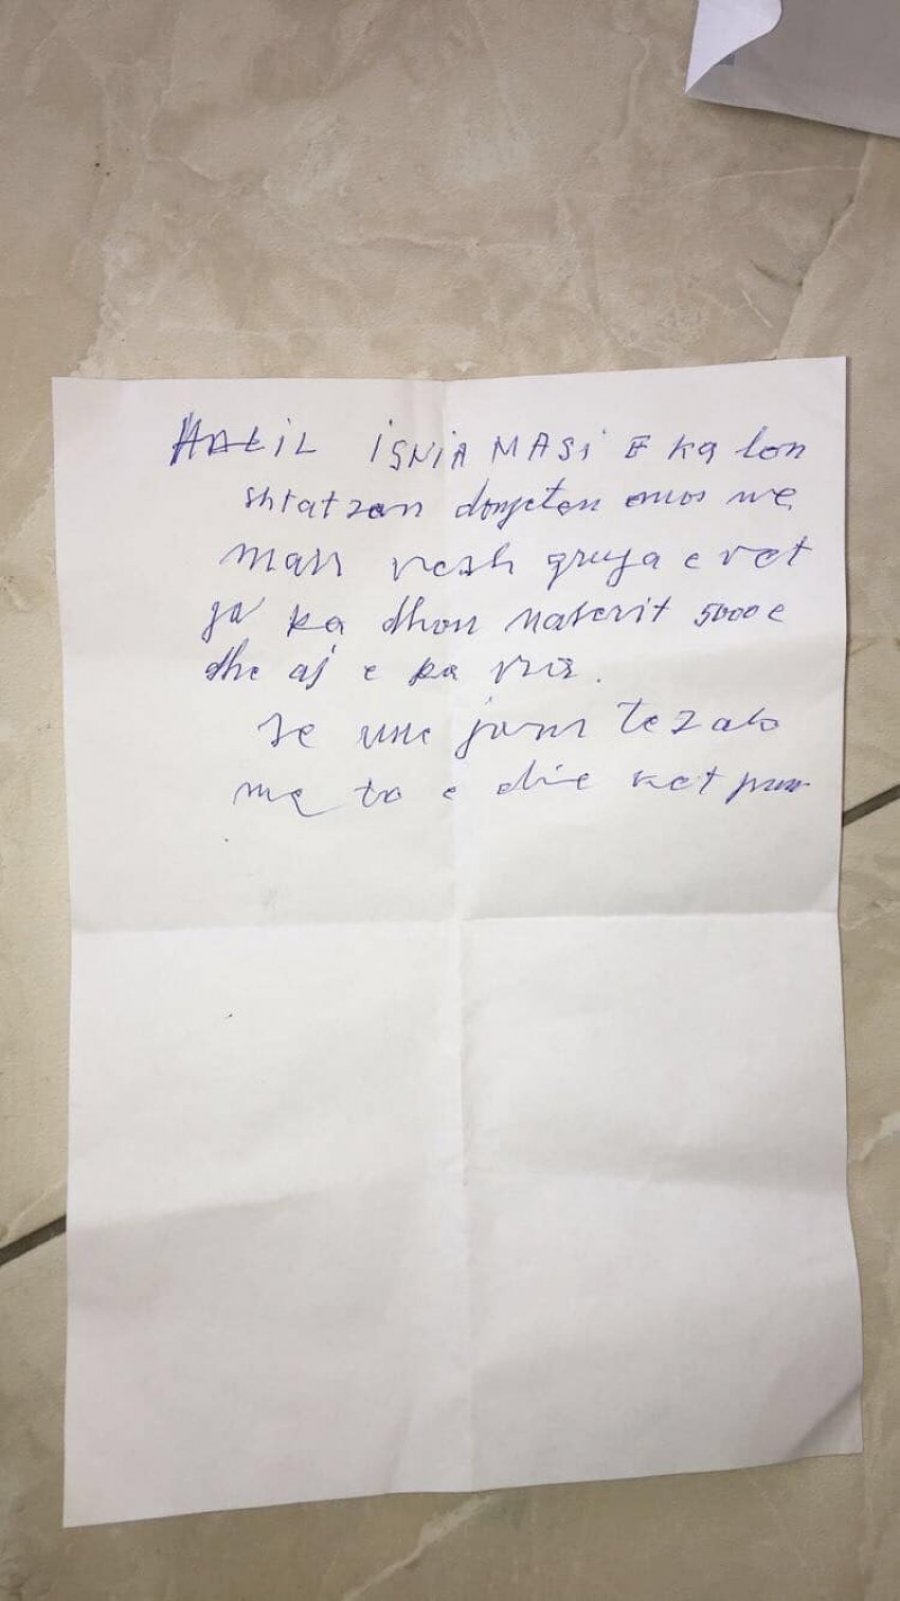 HALIL ISNIA MASI E ka lon
shtatzan donjeten mos me
marr vesh gruja e vet
ja ka dhon Naserit 5000 e
dhe aj e ka vra.
se une jam te zato
me to e die ket pun